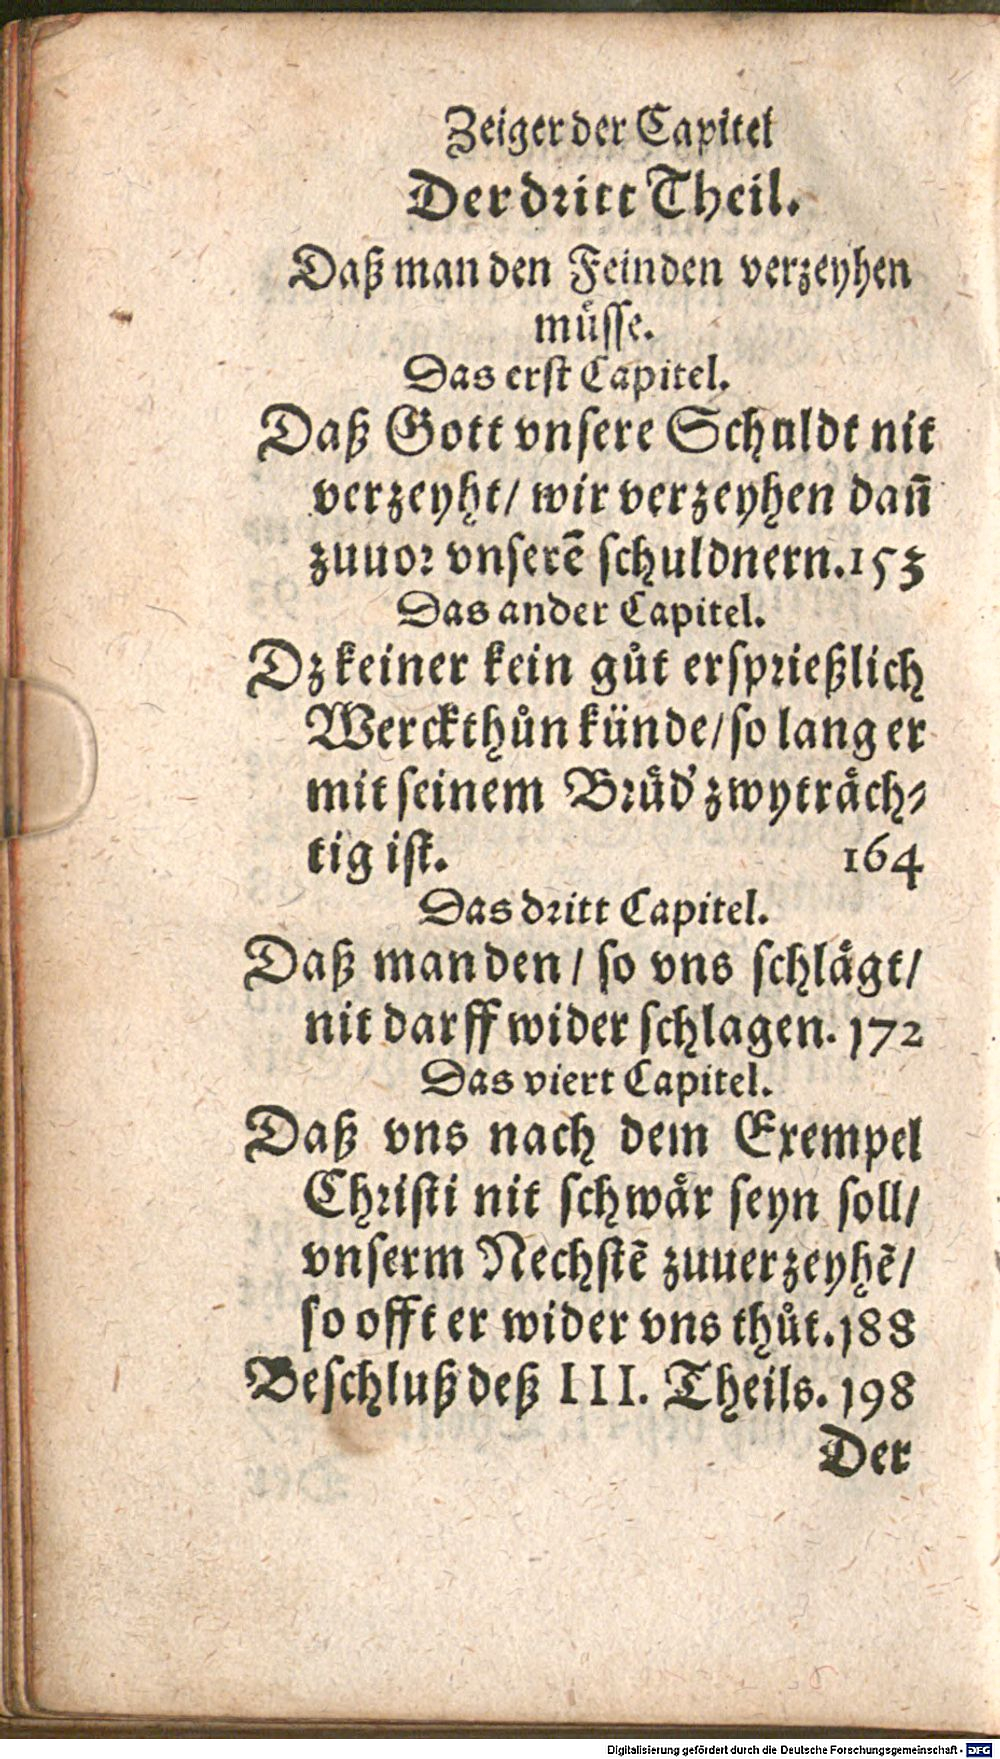 Zeiger der Capitel
Der dritt Theil.
Daß man den Feinden verzeyhen
muͤsse.
Das erst Capitel.
Daß Gott vnsere Schuldt nit
verzeyht/ wir verzeyhen dañ
zuuor vnserẽ schuldnern. 153
Das ander Capitel.
Dz keiner kein guͦt ersprießlich
Werckthuͦn künde/ so lang er
mit seinem Bruͤd' zwytraͤch-
tig ist. 164
Das dritt Capitel.
Daß man den/ so vns schlaͤgt/
nit darff wider schlagen. 172
Das viert Capitel.
Daß vns nach dem Exempel
Christi nit schwaͤr seyn soll/
vnserm Nechstẽ zuuerzeyhẽ/
so offt er wider vns thuͦt. 188
Beschluß deß III. Theils. 198
Der
Digitalisierung gefördert durch die Deutsche Forschungsgemeinschaft - DFG